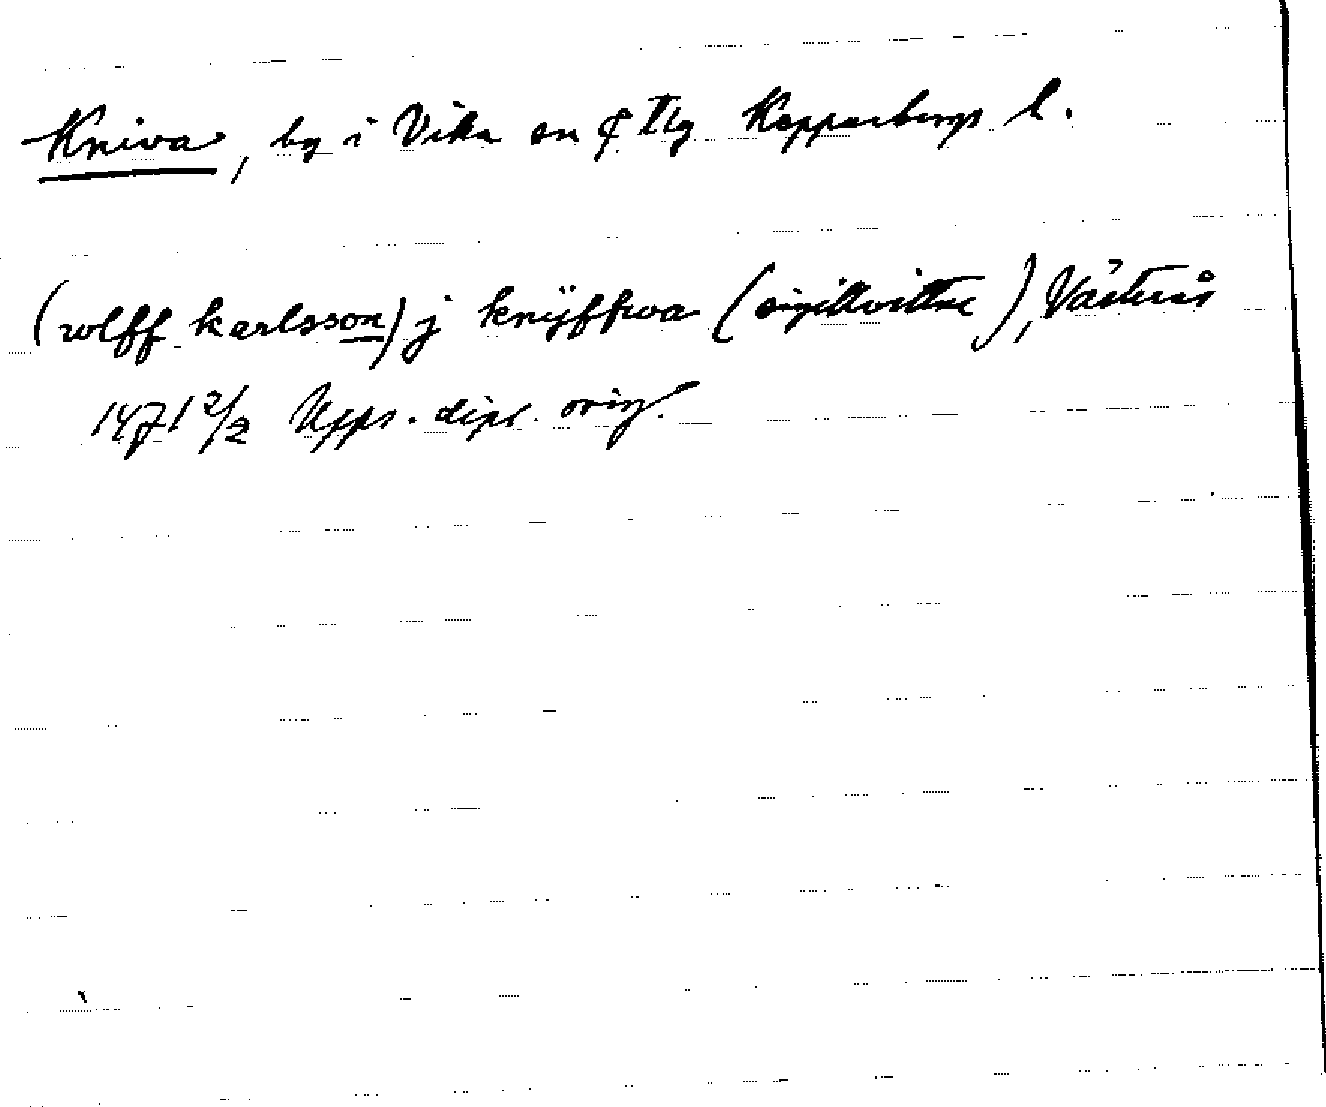 Kniva, by i Vika sn ₵ tlg Kopparbergs l.
(wlff karlsson) j knÿffwa (sigillvittne), Västerås
1471 2/2 Upps. dipl. orig.